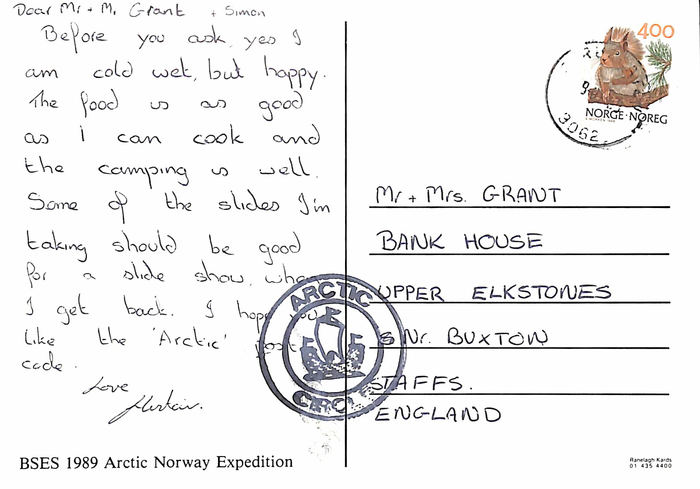 Dear Mr + M. Grant + Simon
Before you ask, yes I
am cold wet, but happy.
The food is as good
as I can cook and
the camping is well.
Some of the slides I'm
taking should be good
for a slide show, when
I get back. I hope you
like the 'Arctic' post
code.
Love
Alistair.
BSES 1989 Arctic Norway Expedition
400
NORGE·NOREG
3062
ARCTIC
CIRCLE
Mr + Mrs. GRANT
BANK HOUSE
UPPER ELKSTONES
Nr. BUXTON
STAFFS.
ENGLAND
Ranelagh Kards
01 435 4400